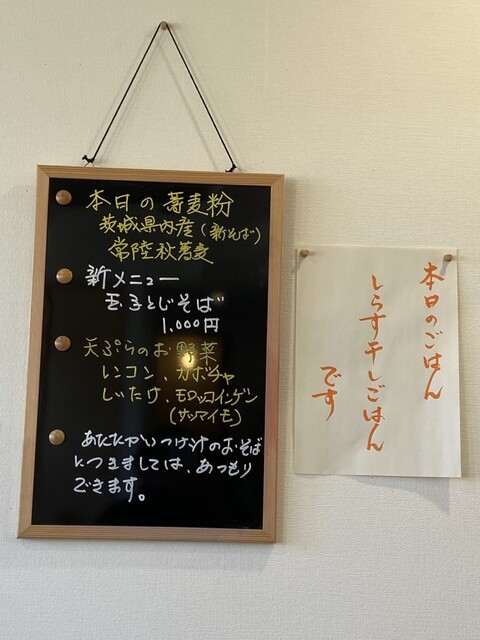 本日の蕎麦粉
茨城県内産(新そば)
常陸秋蕎麦
新メニュー
玉子とじそば
1,000円
天ぷらのお野菜
レンコン、カボチャ
しいたけ、モロッコインゲン
(サツマイモ)
あたたかいつけ汁のおそば
につきましては、あつもり
できます。
本日のごはん
しらす干しごはん
です